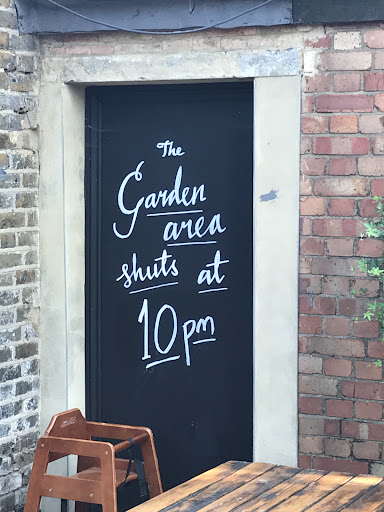 The
Garden
area
shuts at
10pm